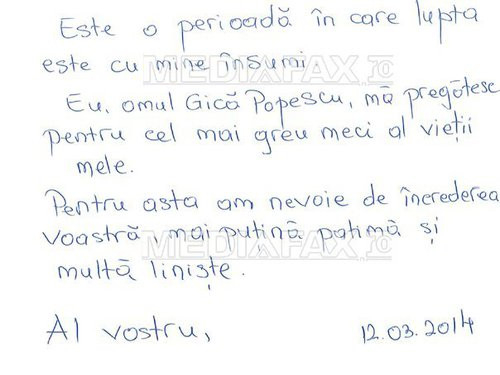 Este o perioadă în care lupta
este cu mine însumi.
MEDIAFAX.RO
Eu, omul Gică Popescu, mă pregătesc
pentru cel mai greu meci al vieții
mele.
Pentru asta am nevoie de încrederea
voastră, mai puțină patimă și
MEDIAFAX.RO
multă liniște.
Al vostru,
12.03.2014